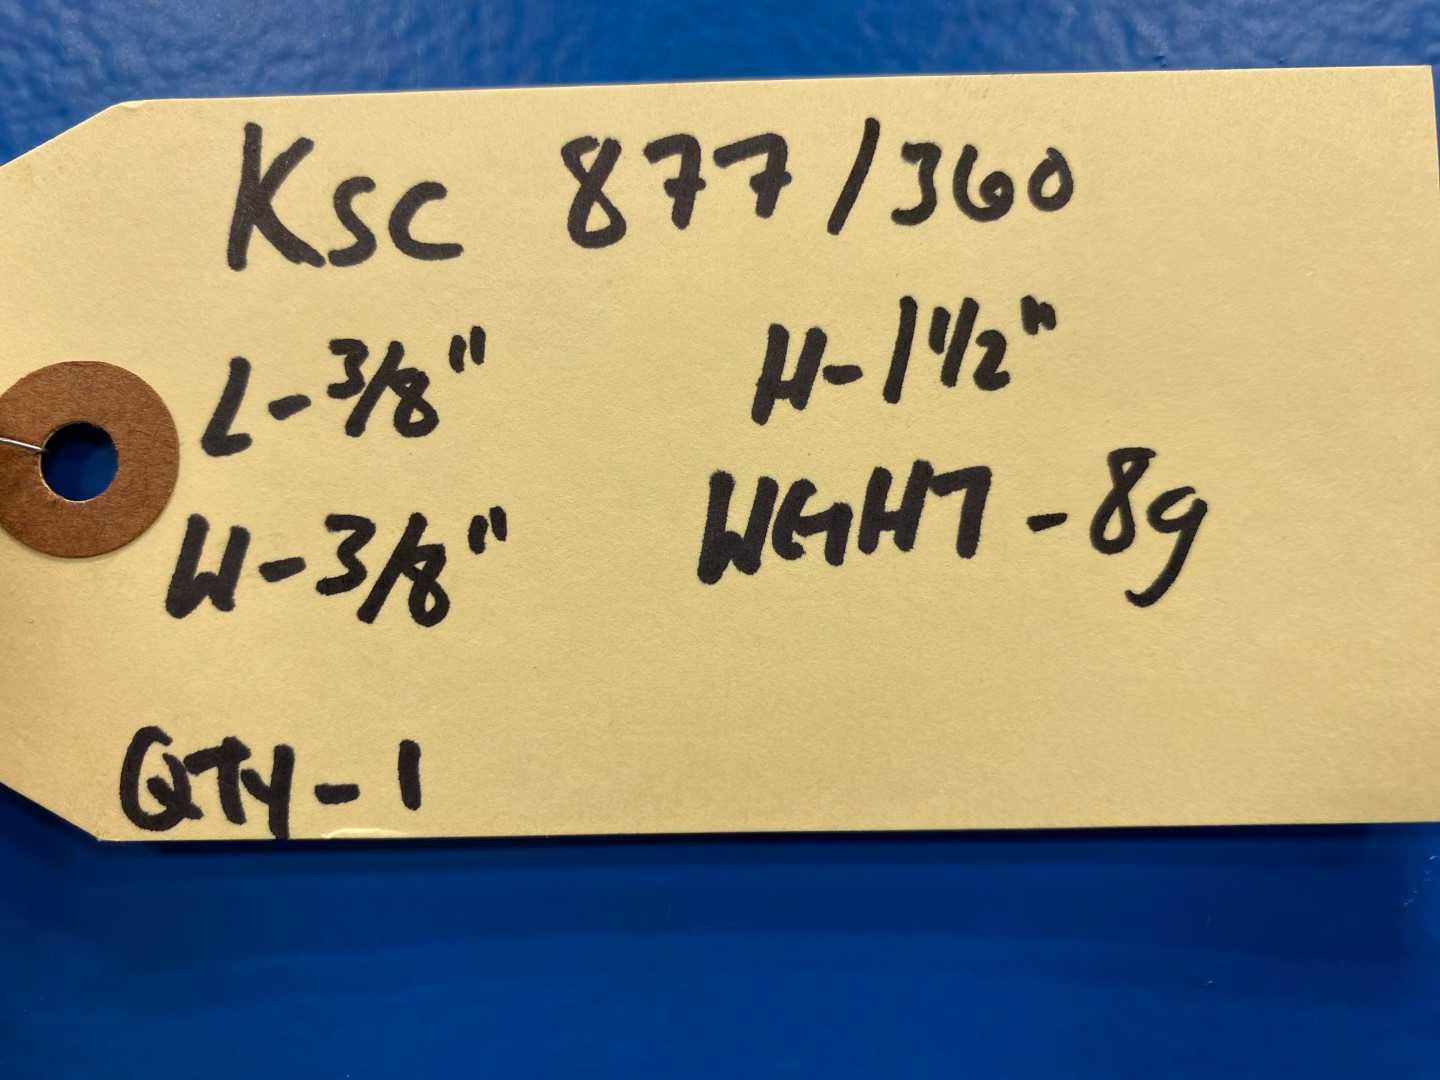 KSC 877/360
L-3/8" H-1 1/2"
W-3/8" WGHT-8g
QTY-1